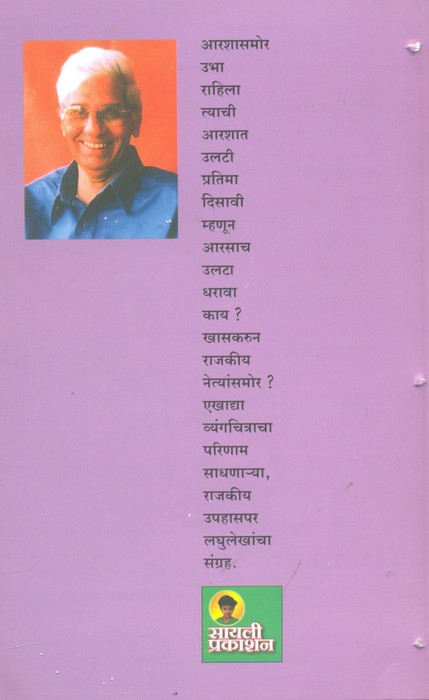 आरशासमोर
उभा
राहिला
त्याची
आरशात
उलटी
प्रतिमा
दिसावी
म्हणून
आरसाच
उलटा
धरावा
काय ?
खासकरुन
राजकीय
नेत्यांसमोर ?
एखाद्या
व्यंगचित्राचा
परिणाम
साधणाऱ्या,
राजकीय
उपहासपर
लघुलेखांचा
संग्रह.
सायली
प्रकाशन